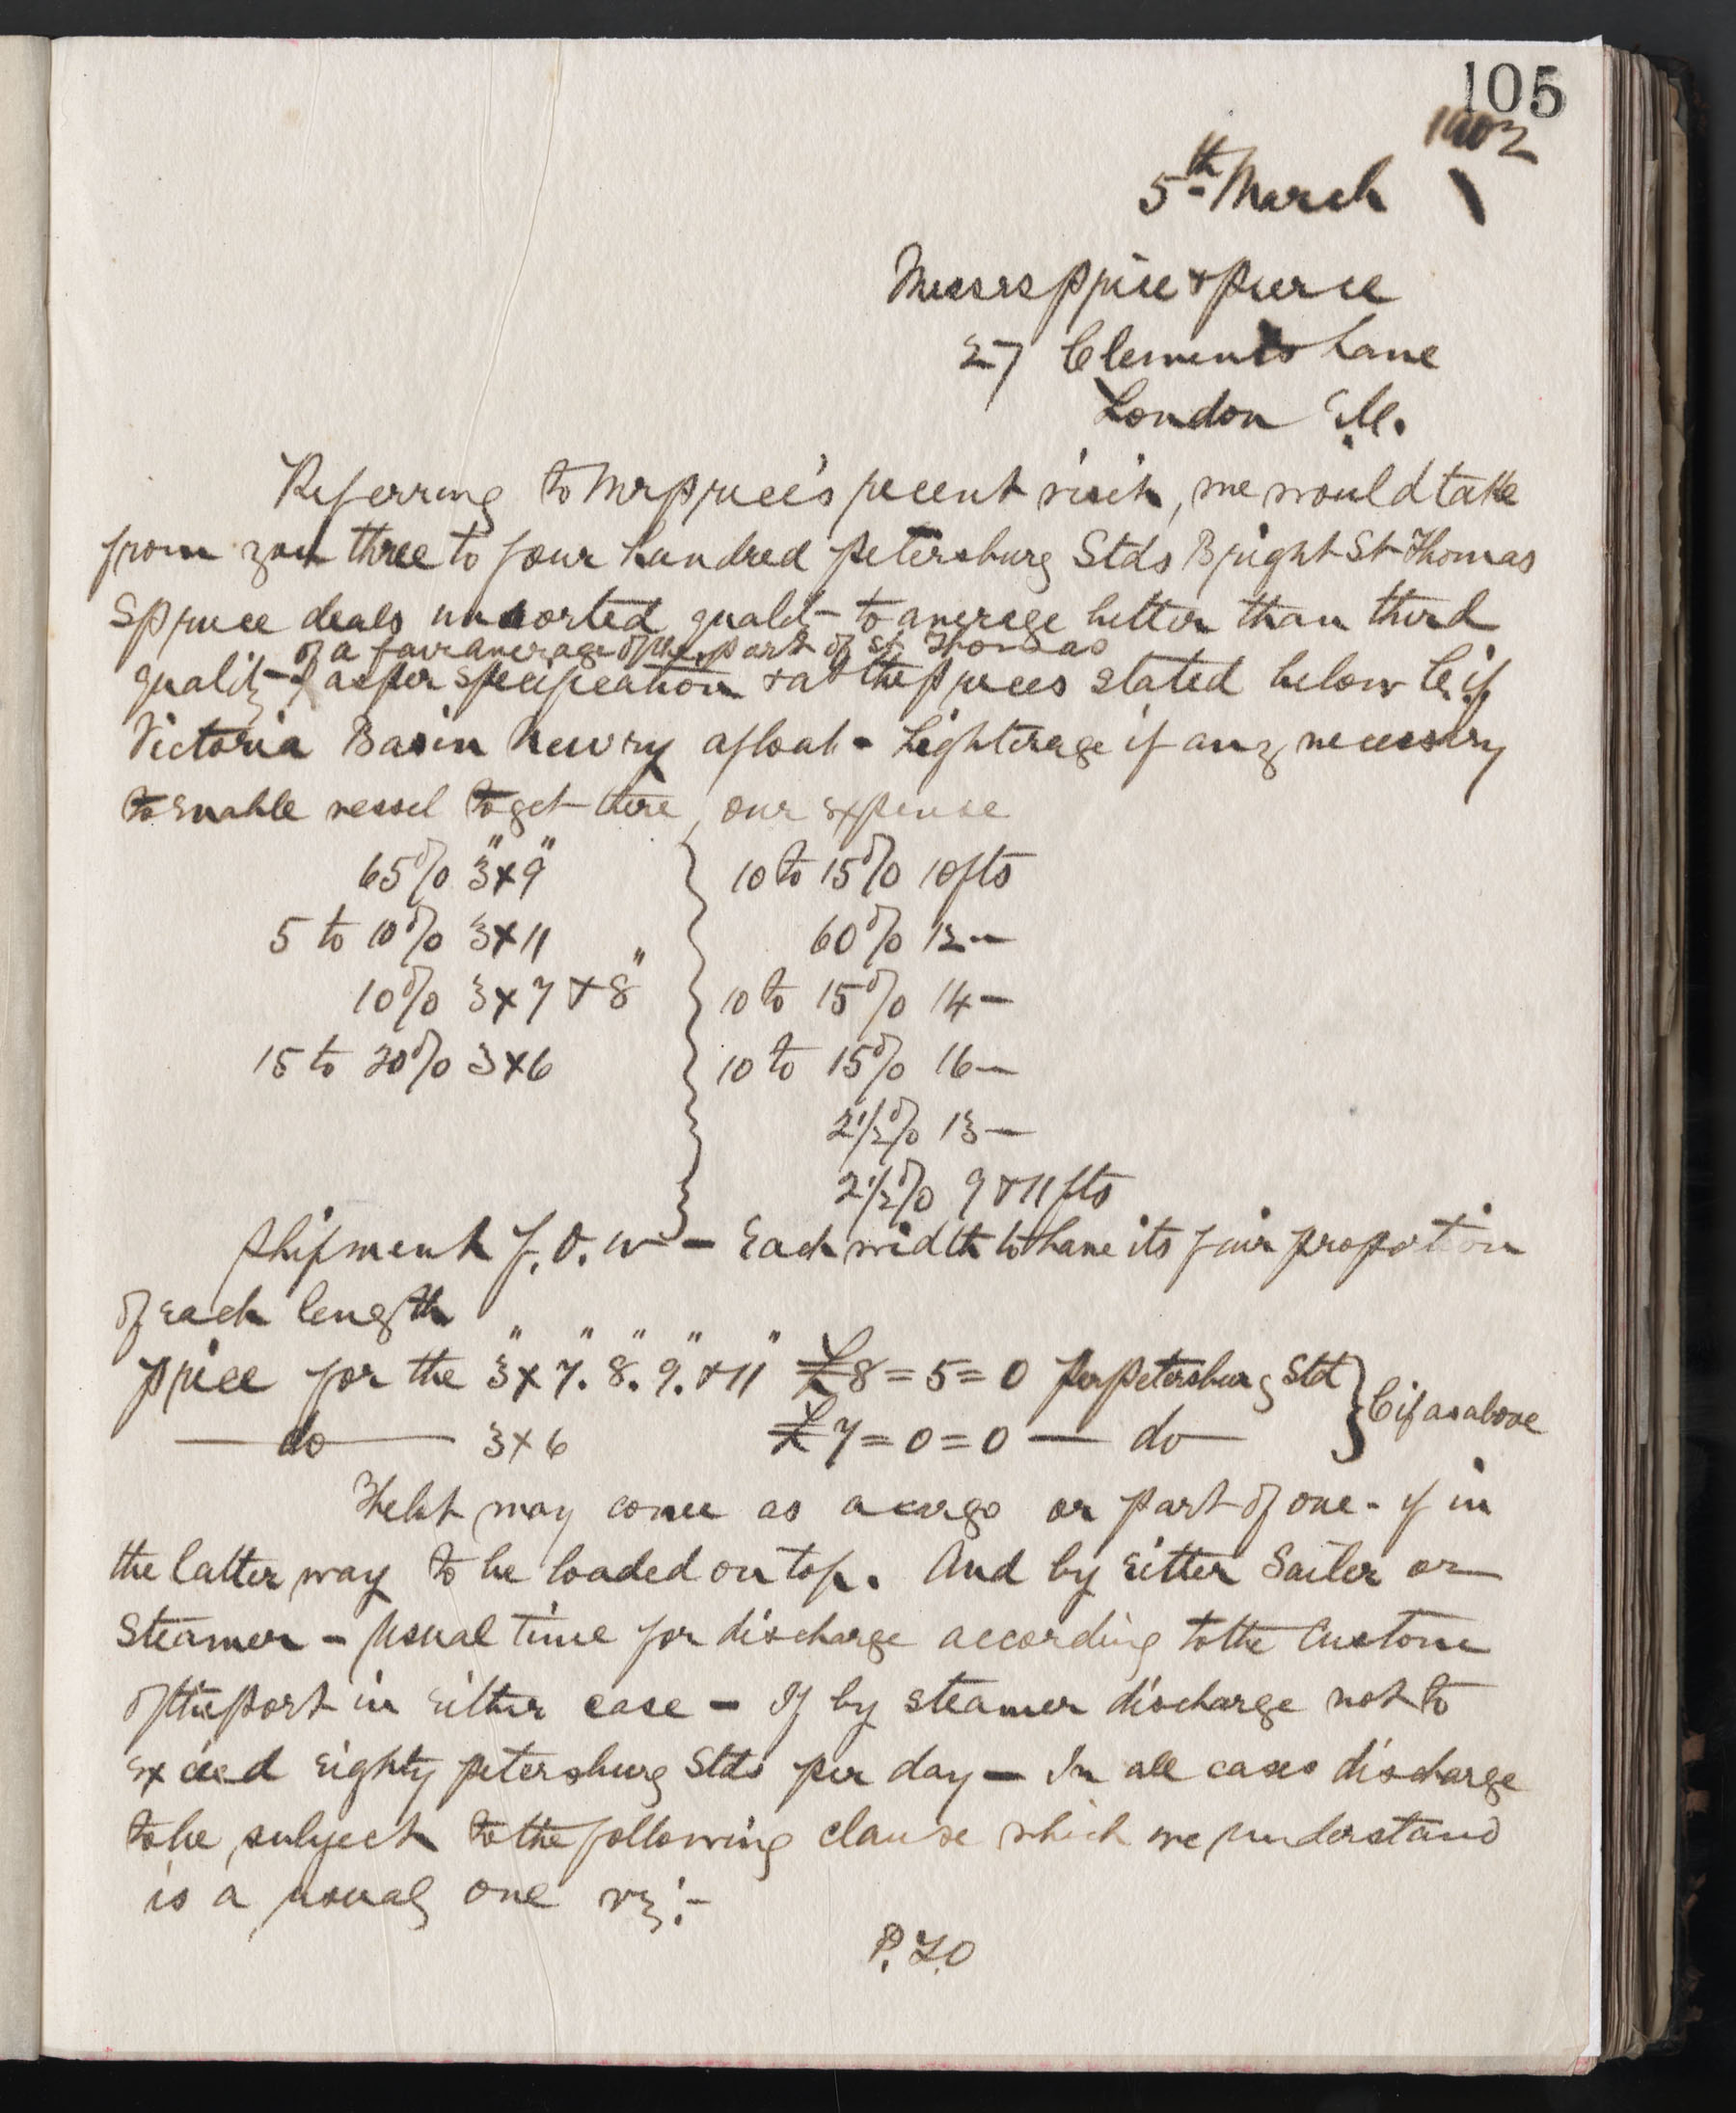 105
1902
5th March
Messrs Price & Pierce
27 Clements Lane
London E.C.
Referring to Mr Price's recent visit, we would take
from you three to four hundred Petersburg Stds Bright St Thomas
Spruce deals unsorted quality to average better than third
of a fair average of the port of St Thomas
quality & as per specification & at the prices stated below C.i.f.
Victoria Basin Newry afloat - Lighterage if any necessary
to enable vessel to get there, our expense
65% 3"x9" 10 to 15% 10fts
5 to 10% 3x11 60% 12 —
10% 3x7 & 8" 10 to 15% 14 —
15 to 20% 3x6 10 to 15% 16 —
2 1/2% 13 —
2 1/2% 9 & 11 fts
Shipment f.o.w - Each width to have its fair proportion
of each length
Price for the 3"x7". 8". 9". & 11" £8=5=0 per Petersburg Std
— do — 3x6 £7=0=0 — do — } C if as above
The lot may come as a cargo or part of one - if in
the latter way to be loaded on top. And by Either Sailer or
Steamer - Usual time for discharge according to the Custom
of the port in Either case - If by steamer discharge not to
Exceed Eighty Petersburg Stds per day - In all cases discharge
to be subject to the following clause which we understand
is a usual one viz:-
P.T.O